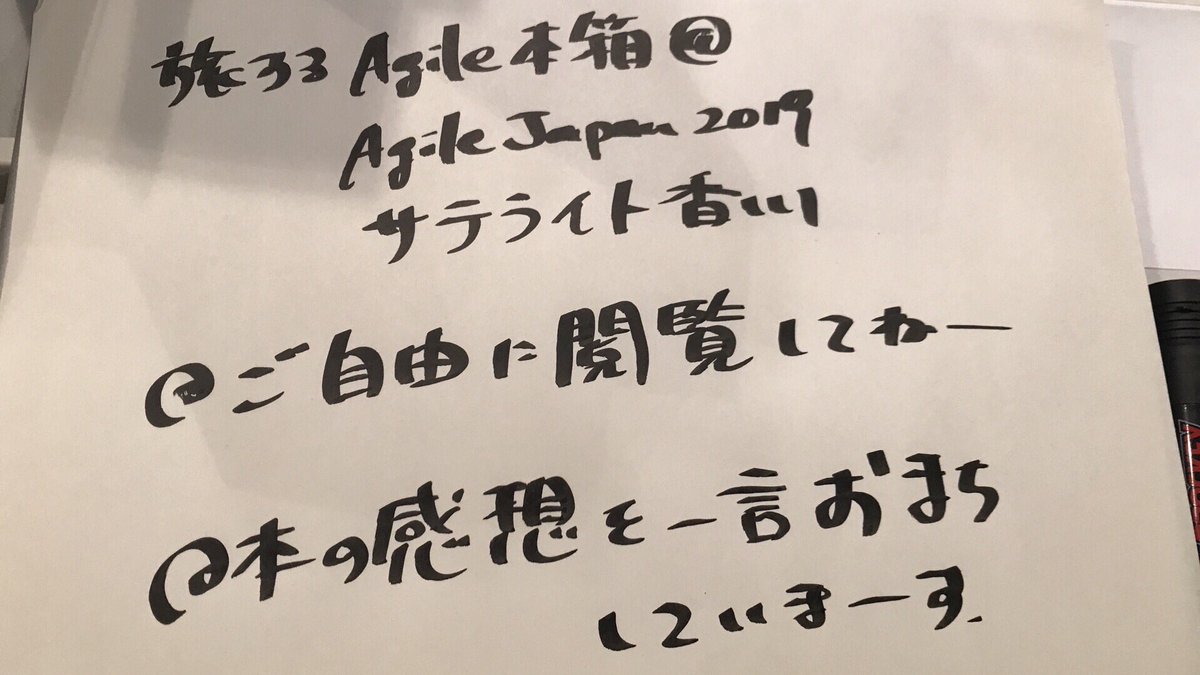 旅するAgile本箱@
Agile Japan 2019
サテライト香川
ご自由に閲覧してねー
本の感想を一言おまち
していまーす.